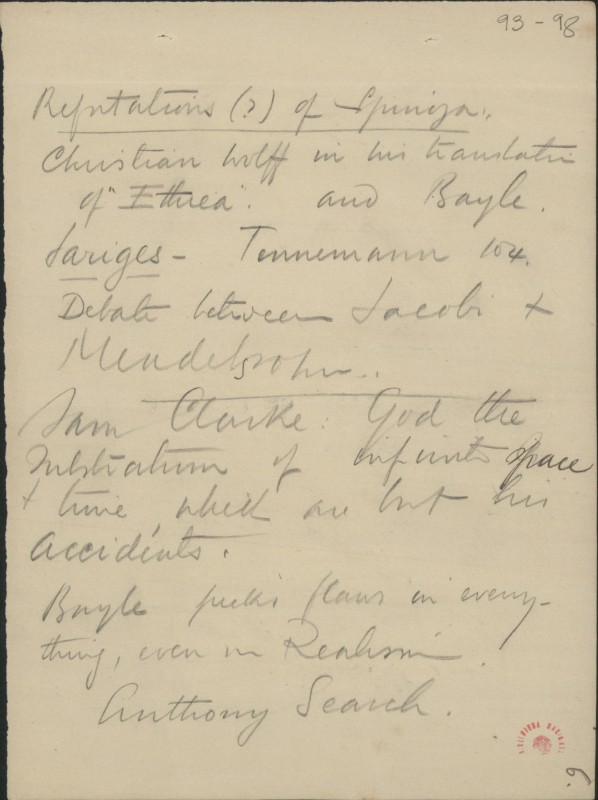 93-98
Refutations (?) of Spinoza.
Christian Wolff in his translation
of "Ethica". and Bayle.
Jariges - Tennemann 104.
Debate between Jacobi +
Mendelssohn..
Sam Clarke: God the
substratum of infinite space
+ time, which are but his
accidents.
Bayle picks flaws in every-
thing, even in Realism.
Anthony Search.
BIBLIOTHECA NACIONAL
9